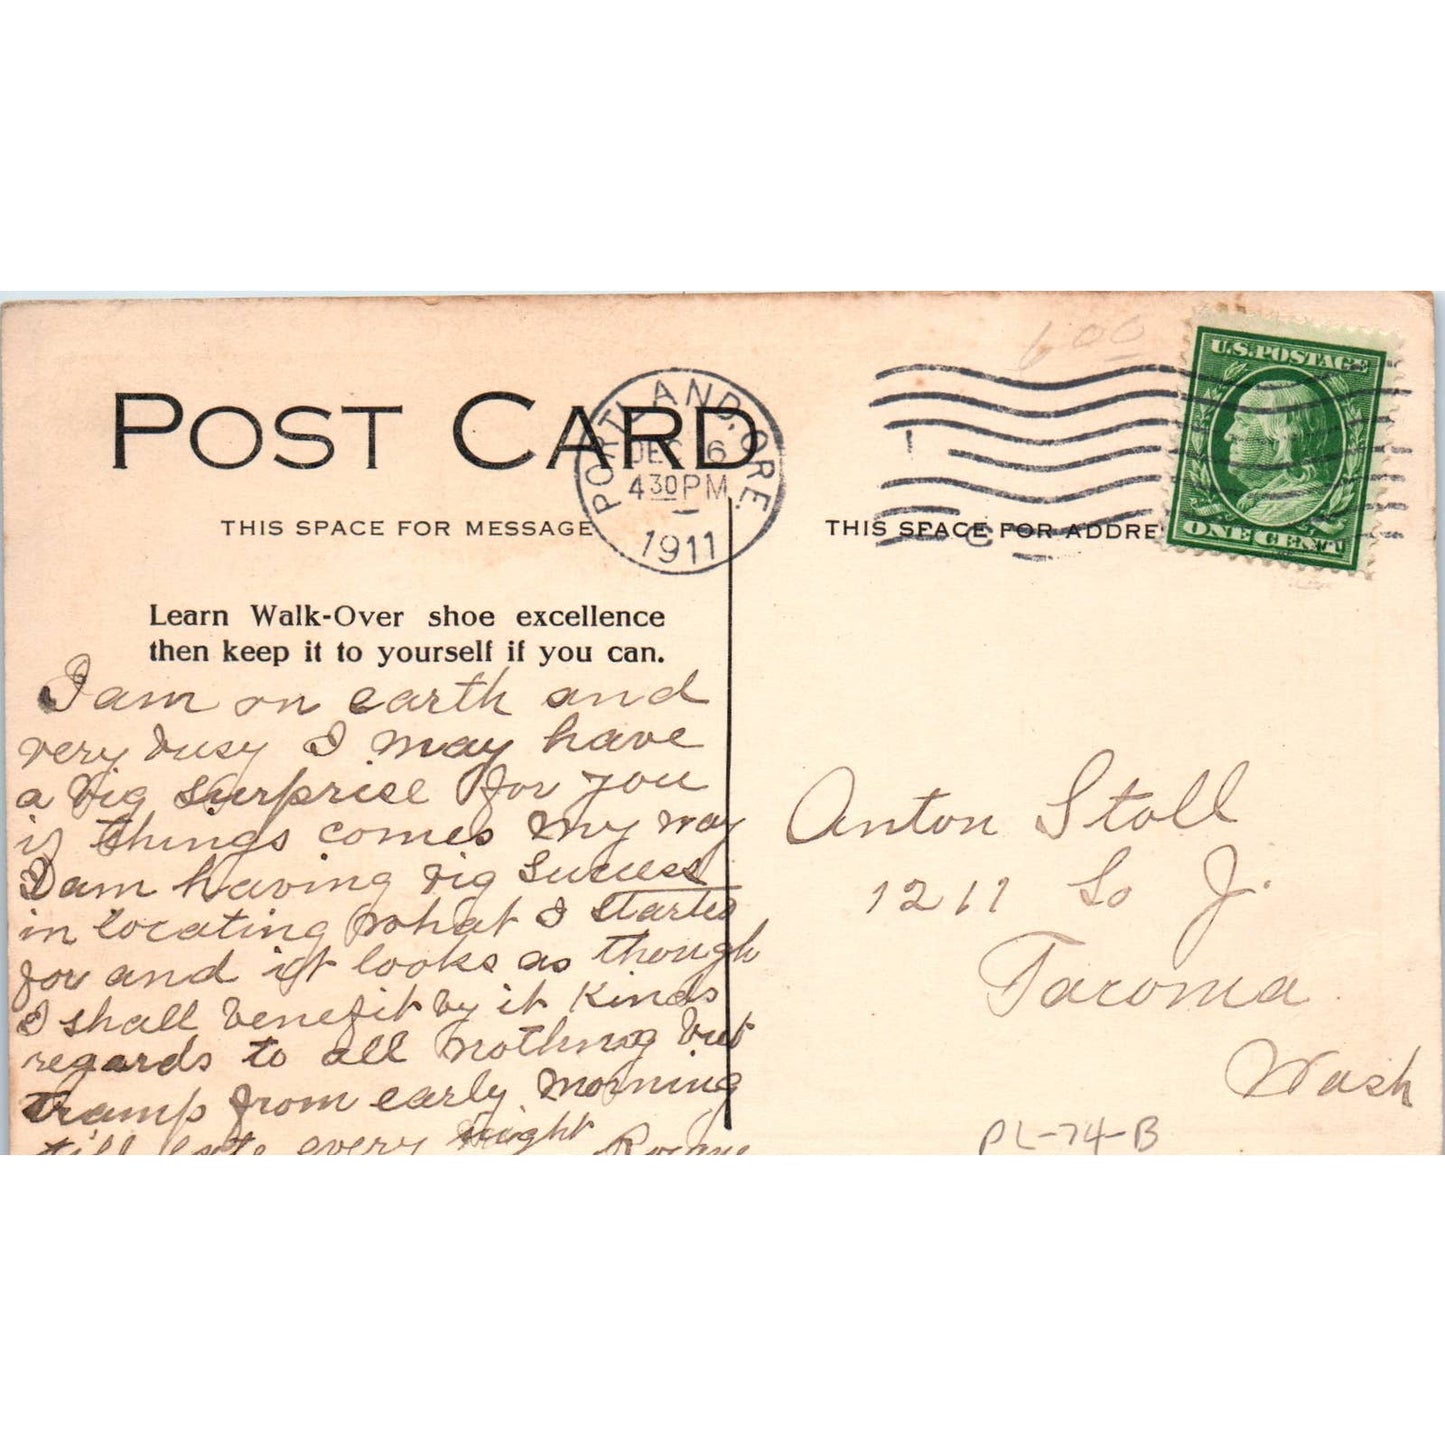 600
U.S. POSTAGE
ONE CENT
PORTLAND, ORE.
DEC 6
430 PM
1911
POST CARD
THIS SPACE FOR MESSAGE
Learn Walk-Over shoe excellence
then keep it to yourself if you can.
I am on earth and
very busy I may have
a big surprise for you
if things comes my way
I am having big success
in locating what I started
for and it looks as though
I shall benefit by it Kinds
regards to all nothing but
tramp from early morning
till late every night
THIS SPACE FOR ADDRE
Anton Stoll
1211 So J.
Tacoma
Wash
PL-74-B